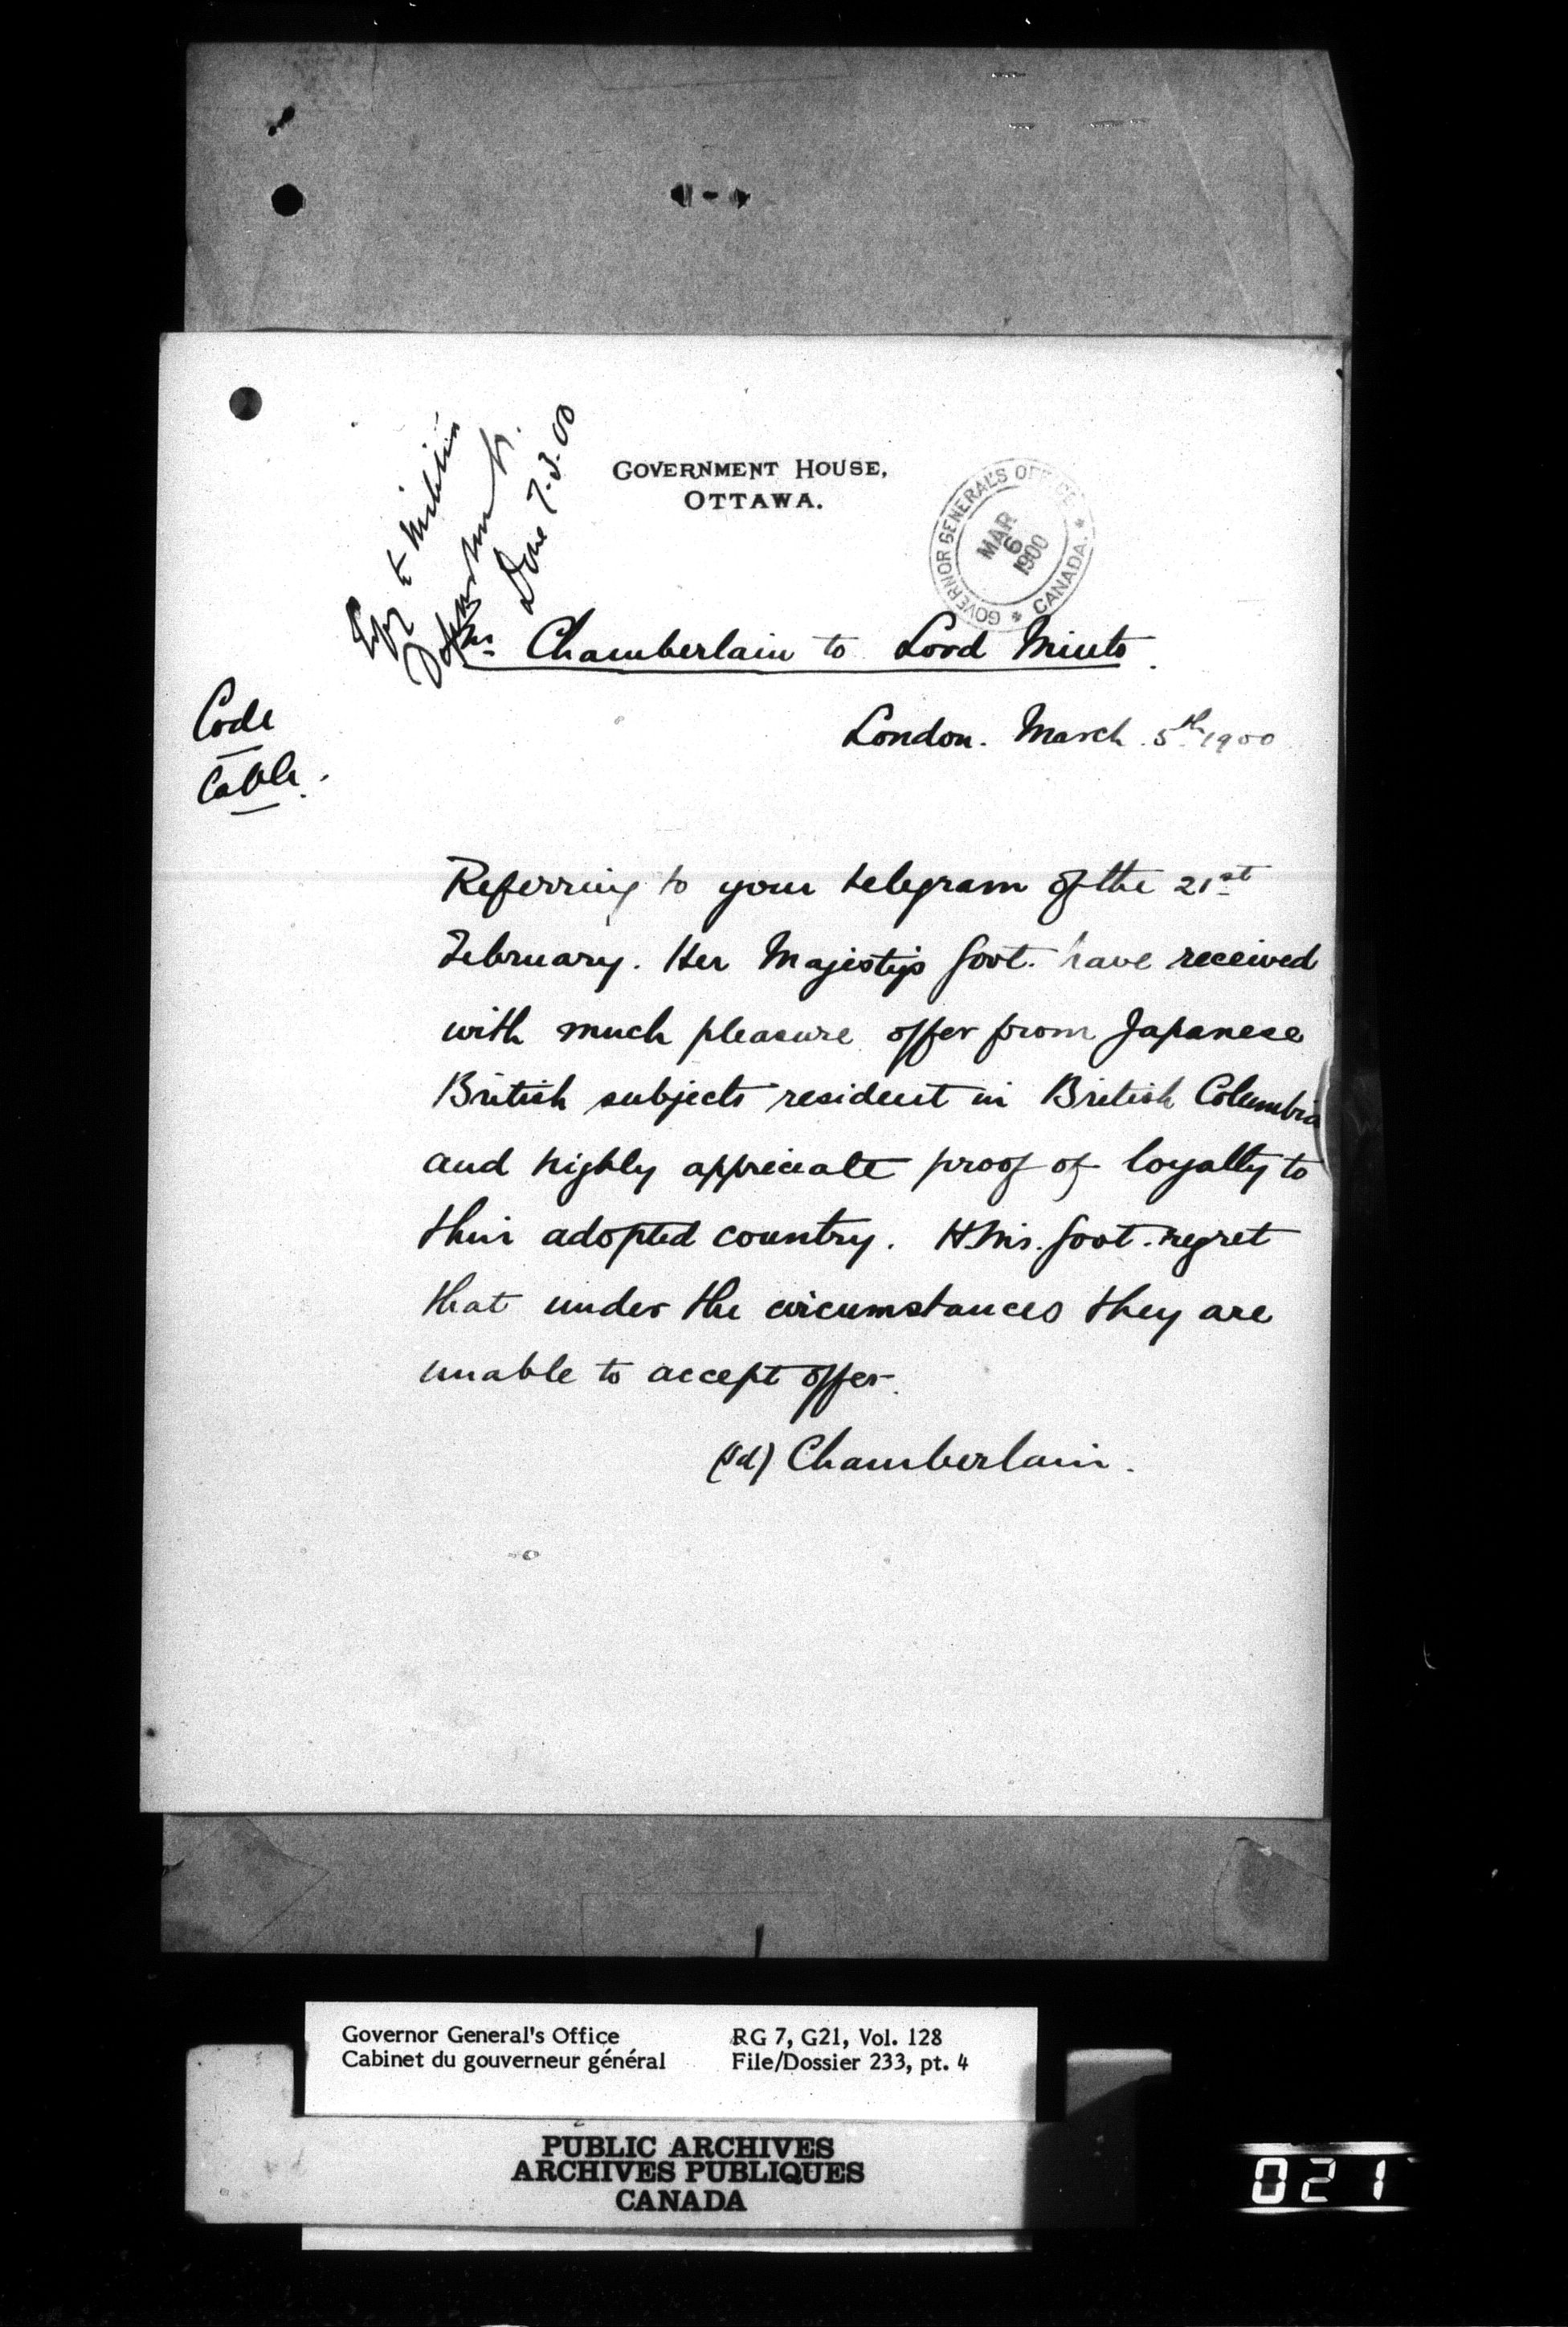 to Militia
Department.
Done 7.3.00
GOVERNMENT HOUSE,
OTTAWA.
GOVERNOR GENERAL'S OFFICE * CANADA. *
MAR
6
1900
Mr Chamberlain to Lord Minto.
Code
Cable.
London. March. 5th 1900
Referring to your telegram of the 21st
February. Her Majesty's Govt. have received
with much pleasure offer from Japanese
British subjects resident in British Columbia
and highly appreciate proof of loyalty to
their adopted country. H.M's. Govt. regret
that under the circumstances they are
unable to accept offer.
(sd) Chamberlain.
Governor General's Office
Cabinet du gouverneur général
RG 7, G21, Vol. 128
File/Dossier 233, pt. 4
PUBLIC ARCHIVES
ARCHIVES PUBLIQUES
CANADA
021